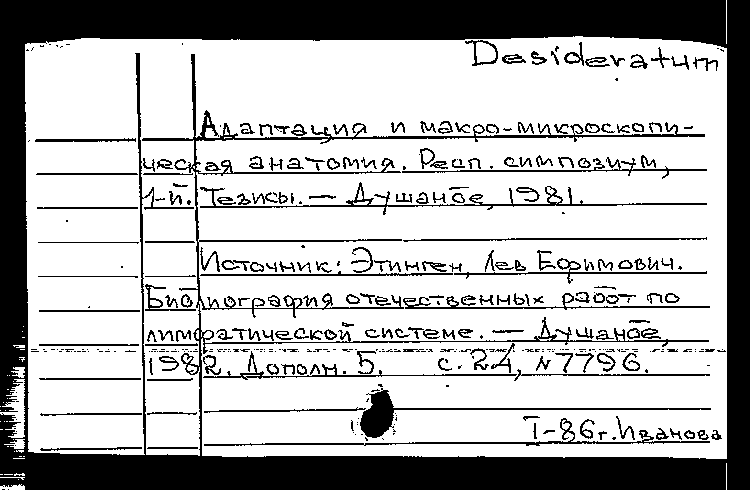 Desideratum
Адаптация и макро-микроскопи-
ческая анатомия. Респ. симпозиум,
1-й. Тезисы. — Душанбе, 1981.
Источник: Этинген, Лев Ефимович.
Библиография отечественных работ по
лимфатической системе. — Душанбе,
1982. Дополн. 5. с. 24, № 7796.
I-86г. Иванова